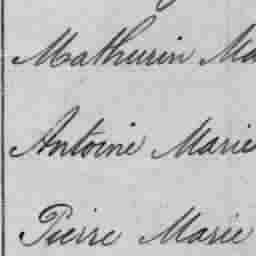 Mathurin Ma
Antoine Marie
Pierre Marie